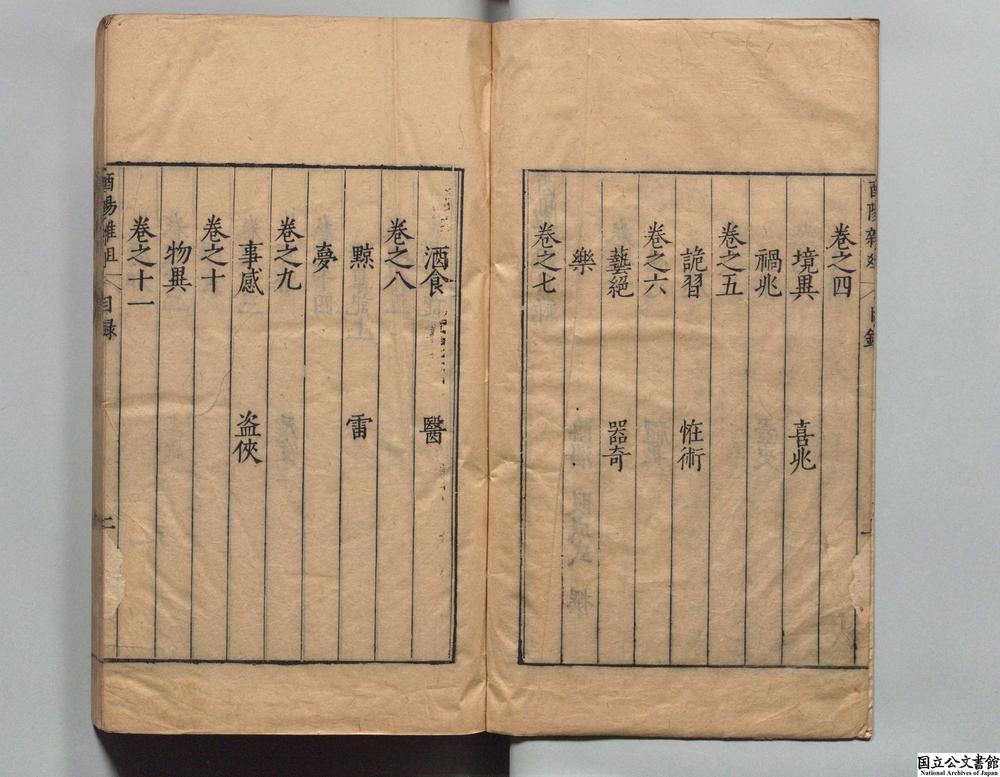 卷之四
境異 喜兆
禍兆
卷之五
詭習 恠術
卷之六
藝絕 器奇
樂
卷之七
酒食 醫
卷之八
黥 雷
夢
卷之九
事感 盜俠
卷之十
物異
卷之十一
酉陽雜俎 目録 二
国立公文書館
National Archives of Japan